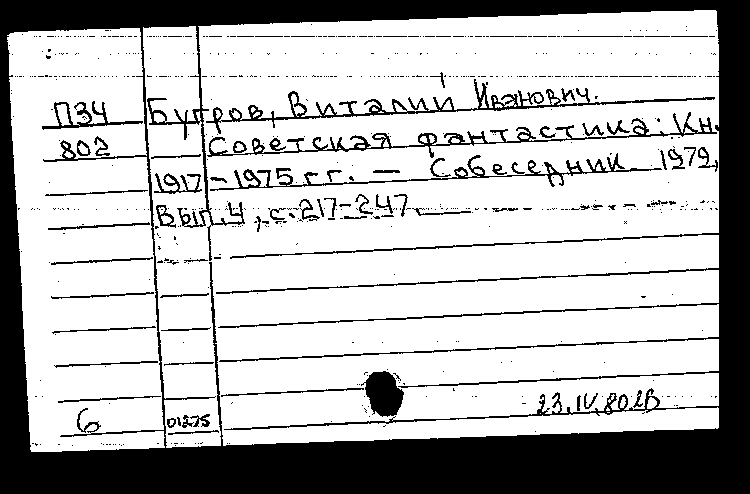 П34 Бугров, Виталий Иванович.
802 Советская фантастика: Кн.
1917-1975 г.г. — Собеседник 1979,
Вып. 4, с. 217-247.
6 01275 23.IV.80